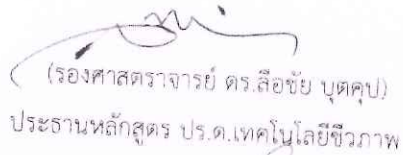 (รองศาสตราจารย์ ดร.ลือชัย บุตคุป)
ประธานหลักสูตร ปร.ด.เทคโนโลยีชีวภาพ